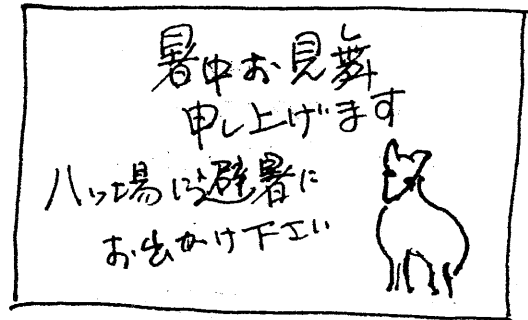 暑中お見舞
申し上げます
八ッ場に避暑に
お出かけ下さい